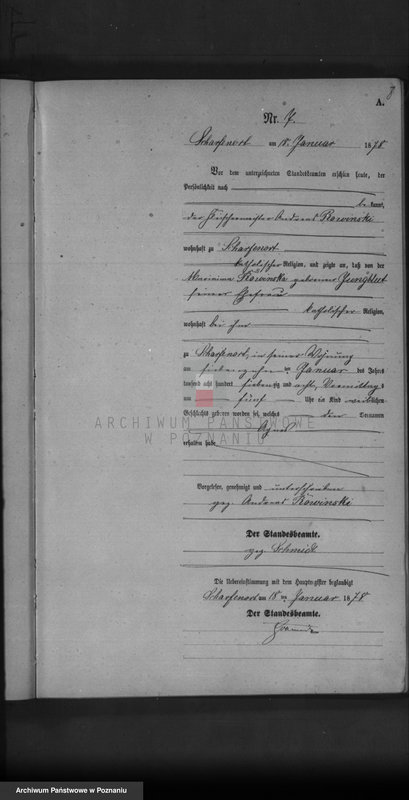 8
A.
Nr. 7.
Scharfenort am 18. Januar 1878
Vor dem unterzeichneten Standesbeamten erschien heute, der
Persönlichkeit nach
be kannt,
der Fleischermeister Andreas Röwinski
wohnhaft zu Scharfenort
katholischer Religion, und zeigte an, daß von der
Marianna Röwinska geborenen Jungblut
seiner Ehefrau
katholischer Religion,
wohnhaft bei ihm
zu Scharfenort, in seiner Wohnung
am siebenzehnten Januar des Jahres
tausend acht hundert siebenzig und acht, Vormittags
um fünf Uhr ein Kind weiblichen
Geschlechts geboren worden sei, welches den Vornamen
Agnes
erhalten habe
ARCHIWUM PAŃSTWOWE
W POZNANIU
Vorgelesen, genehmigt und unterschrieben
gez. Andreas Röwinski
Der Standesbeamte.
gez. Schmidt
Die Uebereinstimmung mit dem Hauptregister beglaubigt
Scharfenort am 18ten Januar 1878
Der Standesbeamte.
Archiwum Państwowe w Poznaniu